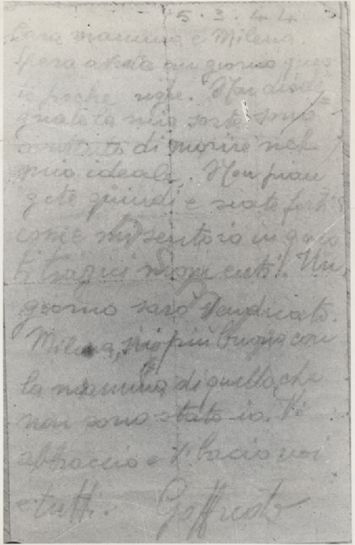 5. 3. 44
Cara mammina e Milena
spero avrete un giorno queste
poche righe. Non disde-
gnate la mia sorte, sono
di morire nel
mio ideale. Non pian
gete quindi e siate forti
come mi sento io in questi
tragici momenti! Un
giorno sarò vendicato.
Milena, sii più buona con
la mammina di quello che
non sono stato io. Vi
abbraccio e vi bacio voi
e tutti. Goffredo